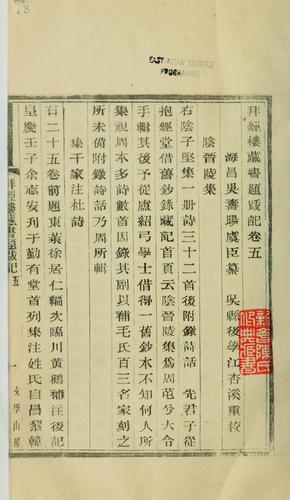 3
EAST ASIAN STUDIES
PROGRAMME
拜經樓藏書題跋記卷五
海昌吳壽暘虞臣纂　吳縣後學江杏溪重校
陰晉陵集
右陰子堅集一册詩三十二首後附錄詩話　先君子從
抱經堂借舊鈔錄藏記首頁云陰晉陵集爲周范兮大令
手輯其後予從盧紹弓學士借得一舊鈔本不知何人所
集視周本多詩數首因錄其副以補毛氏百三名家刻之
所未備附錄詩話乃周所輯
集千家注杜詩
右二十五卷前題東萊徐居仁編次臨川黃鶴補注後記
皇慶壬子余志安刋于勤有堂首列集注姓氏自昌黎韓
拜經樓藏書題跋記五
一
文學山房